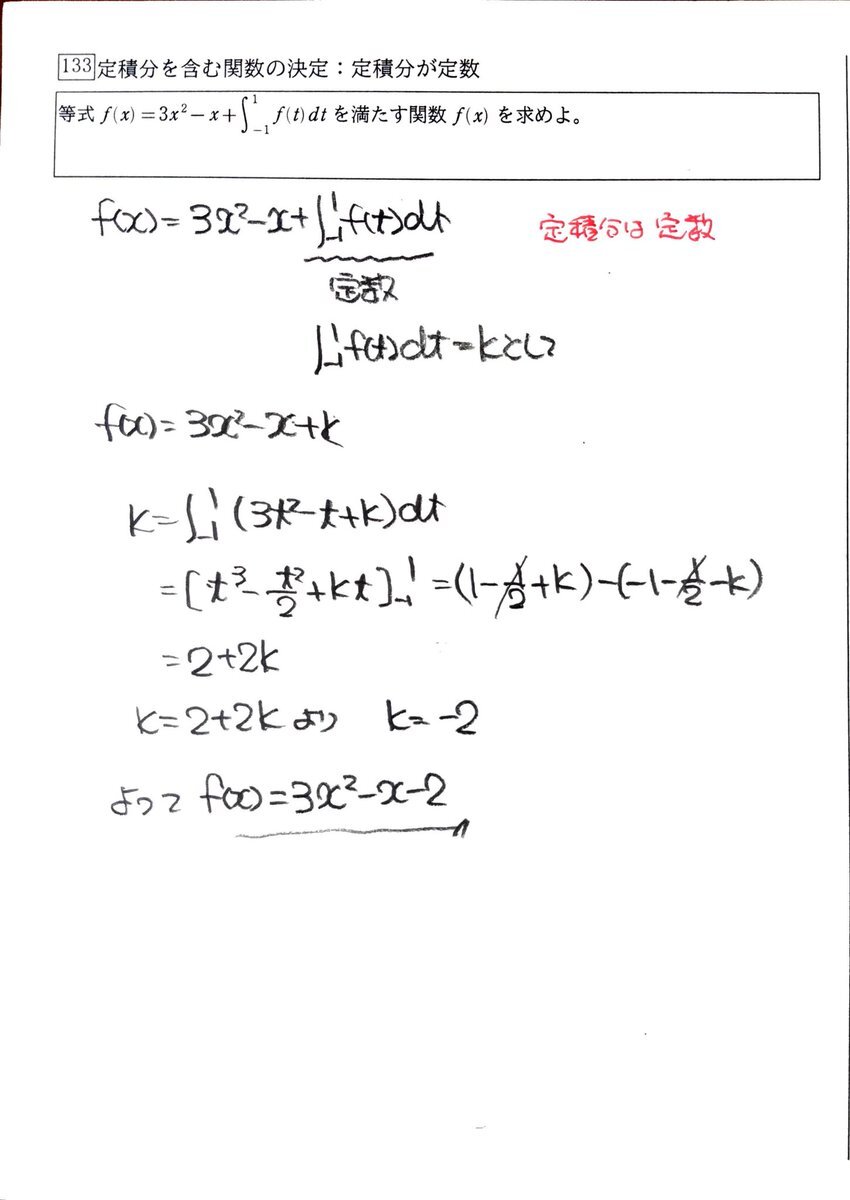 133 定積分を含む関数の決定：定積分が定数
等式 f(x)=3x²−x+∫₋₁¹ f(t)dt を満たす関数 f(x) を求めよ。
f(x)=3x²−x+∫₋₁¹f(t)dt
定積分は定数
定数
∫₋₁¹f(t)dt=kとして
f(x)=3x²−x+k
k=∫₋₁¹(3t²−t+k)dt
=[t³−t²/2+kt]₋₁¹=(1−1/2+k)−(−1−1/2−k)
=2+2k
k=2+2kより k=−2
よって f(x)=3x²−x−2